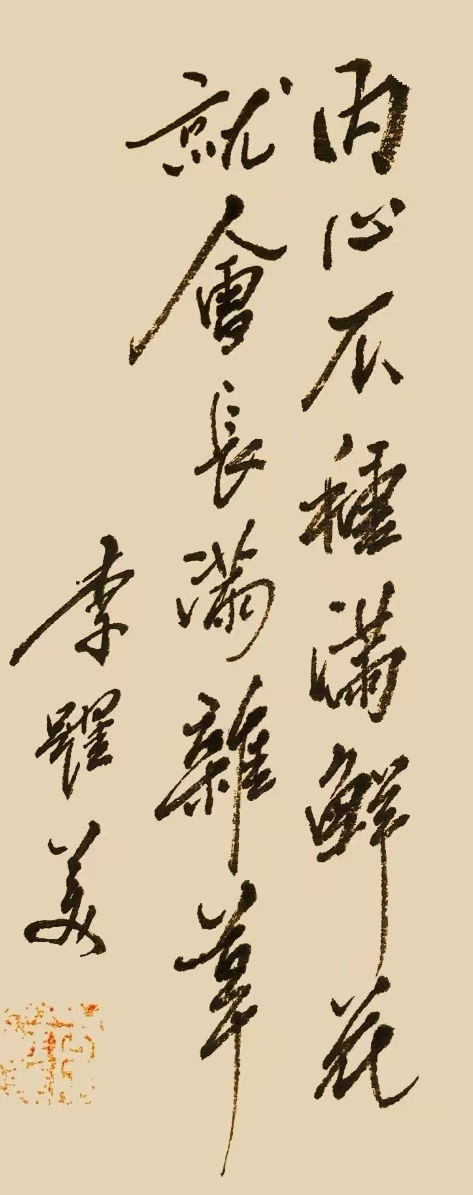 内心不種滿鮮花
就會長滿雜草
李躍美